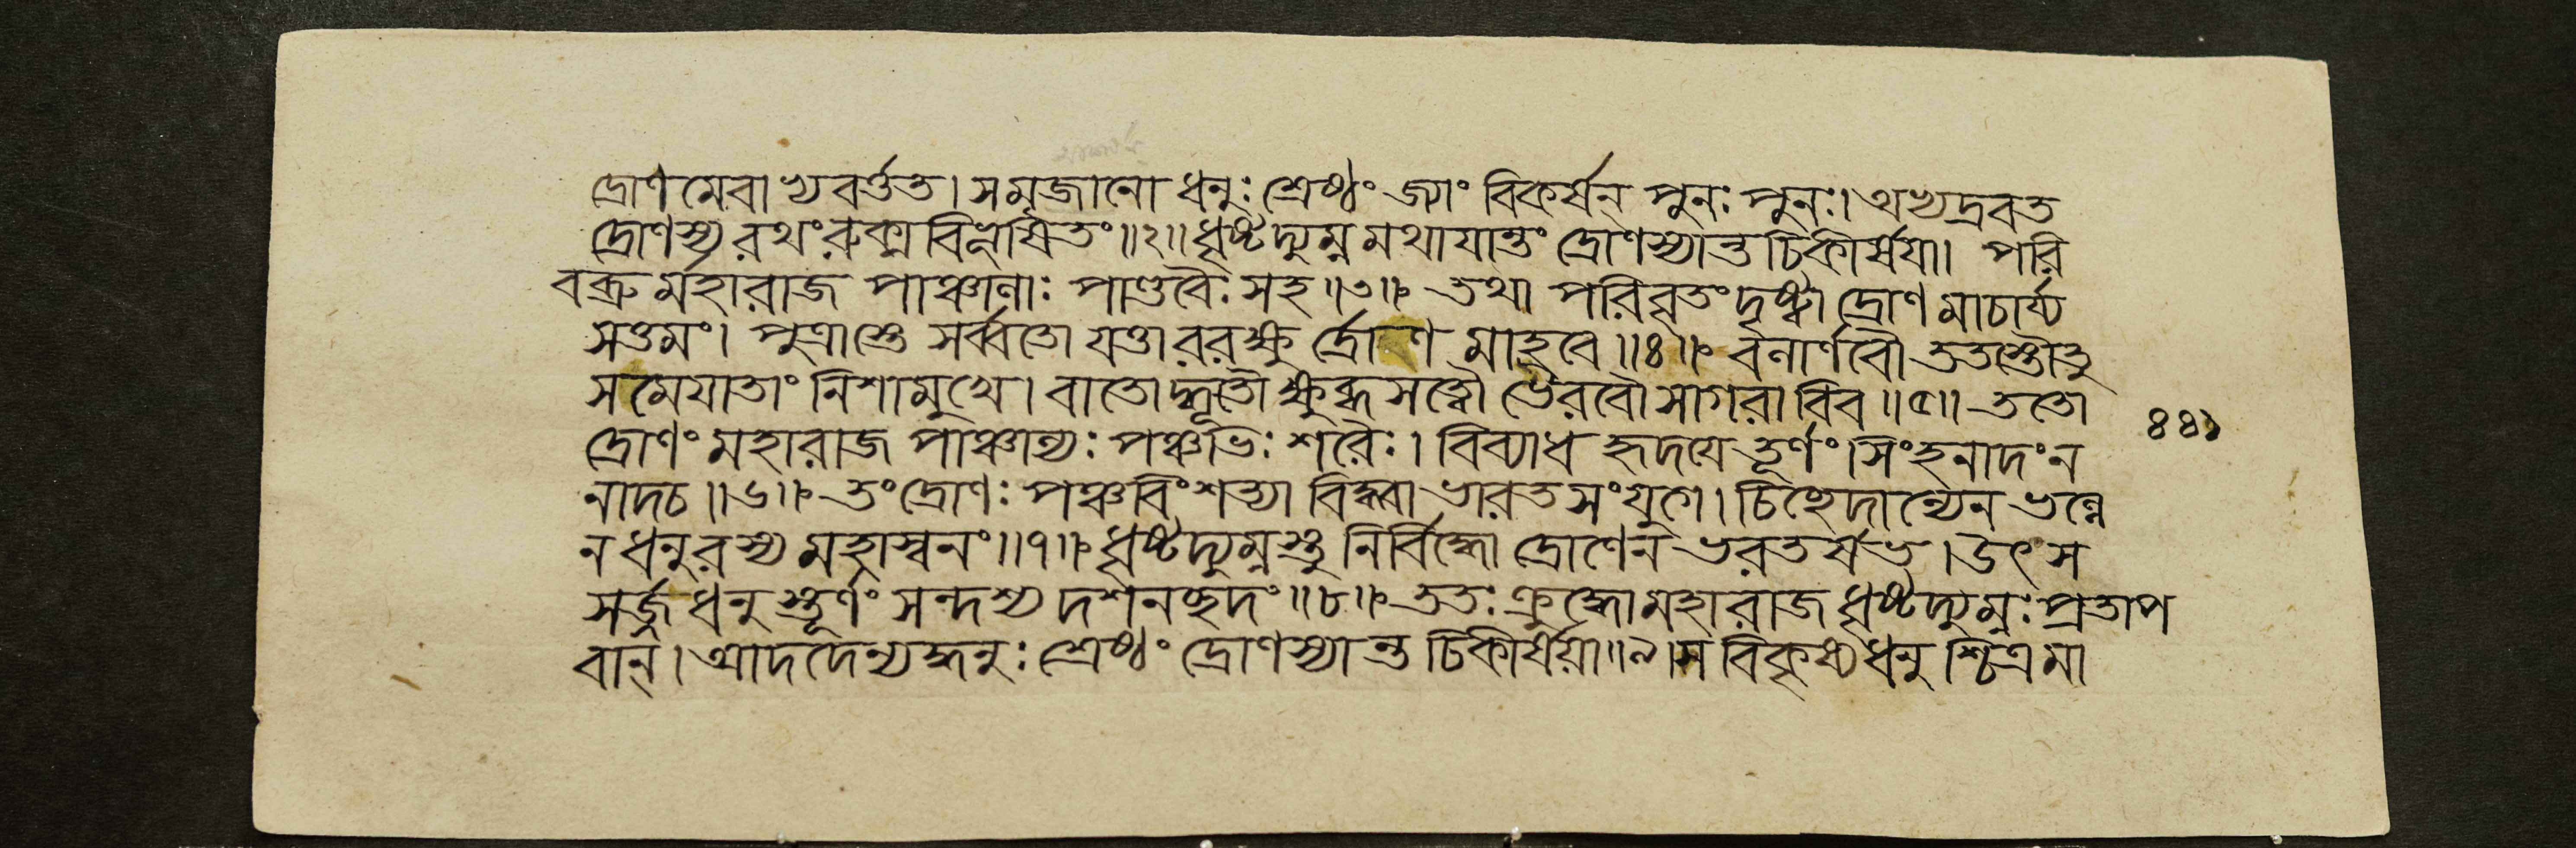 দ্রোণমেবাভ্যবর্ত্তত। সমৃজানো ধনুঃ শ্রেষ্ঠং জ্যাং বিকর্ষন্ পুনঃ পুনঃ। অভ্যদ্রবত
দ্রোণস্য রথং রুক্মবিভূষিতং॥২॥ ধৃষ্টদ্যুম্নমথাযান্তং দ্রোণস্যান্তচিকীর্ষযা। পরি
বব্রুর্মহারাজ পাঞ্চালাঃ পাণ্ডবৈঃ সহ॥৩॥ তথা পরিবৃতং দৃষ্ট্বা দ্রোণমাচার্য্য
সত্তমং। পুত্রাস্তে সর্ব্বতো যত্তা ররক্ষুর্দ্রোণমাহবে॥৪॥ বলার্ণবৌ ততস্তৌতু
সমেযাতাং নিশামুখে। বাতোদ্ধূতৌ ক্ষুব্ধসত্বৌ ভৈরবৌ সাগরাবিব॥৫॥ ততো
দ্রোণং মহারাজ পাঞ্চাল্যঃ পঞ্চভিঃ শরৈঃ। বিব্যাধ হৃদযে তূর্ণং সিংহনাদং ন
নাদচ॥৬॥ তং দ্রোণঃ পঞ্চবিংশত্যা বিদ্ধ্বা ভারত সংযুগে। চিচ্ছেদান্যেন ভল্লে
ন ধনুরস্য মহাস্বনং॥৭॥ ধৃষ্টদ্যুম্নস্তু নির্বিদ্ধো দ্রোণেন ভরতর্ষভ। উৎস
সর্জ্জ ধনুস্তূর্ণং সন্দশ্য দশনচ্ছদং॥৮॥ ততঃ ক্রুদ্ধো মহারাজ ধৃষ্টদ্যুম্নঃ প্রতাপ
বান্। আদদেন্যদ্ধনুঃ শ্রেষ্ঠং দ্রোণস্যান্তচিকীর্ষয়া॥৯। স বিকৃষ্য ধনুশ্চিত্রমা
৪৪১